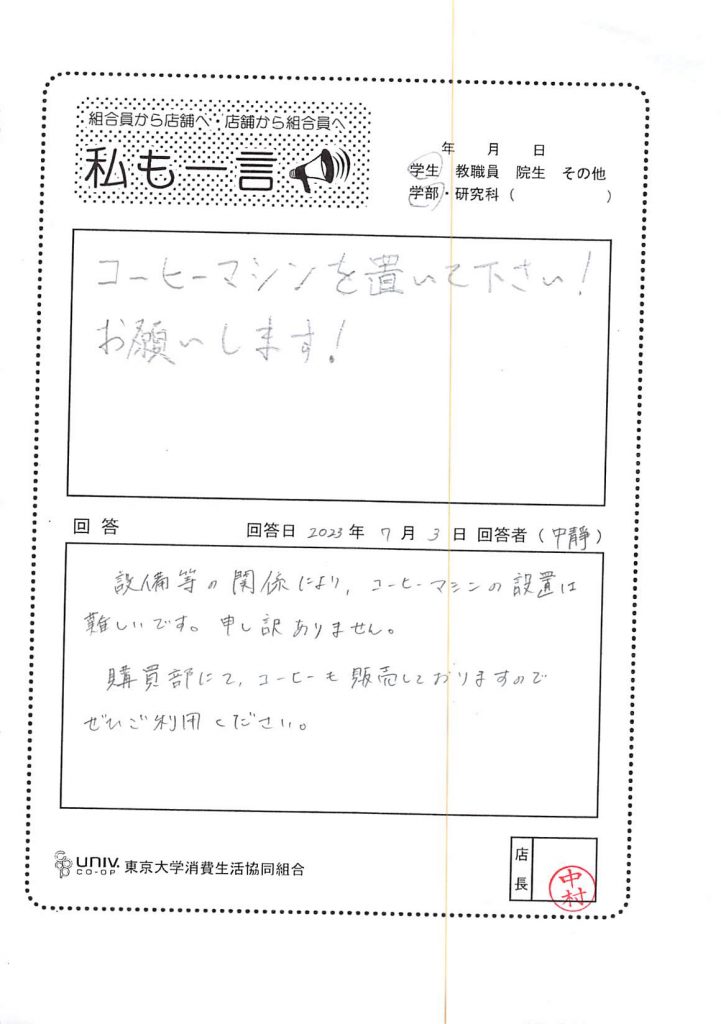 組合員から店舗へ・店舗から組合員へ
私も一言
年 月 日
学生 教職員 院生 その他
学部・研究科（ ）
コーヒーマシンを置いて下さい!
お願いします!
回答 回答日 2023年 7月 3日 回答者（中靜）
設備等の関係により,コーヒーマシンの設置は
難しいです。申し訳ありません。
購買部にて,コーヒーも販売しておりますので
ぜひご利用ください。
UNIV.
CO-OP
東京大学消費生活協同組合
店長
中村